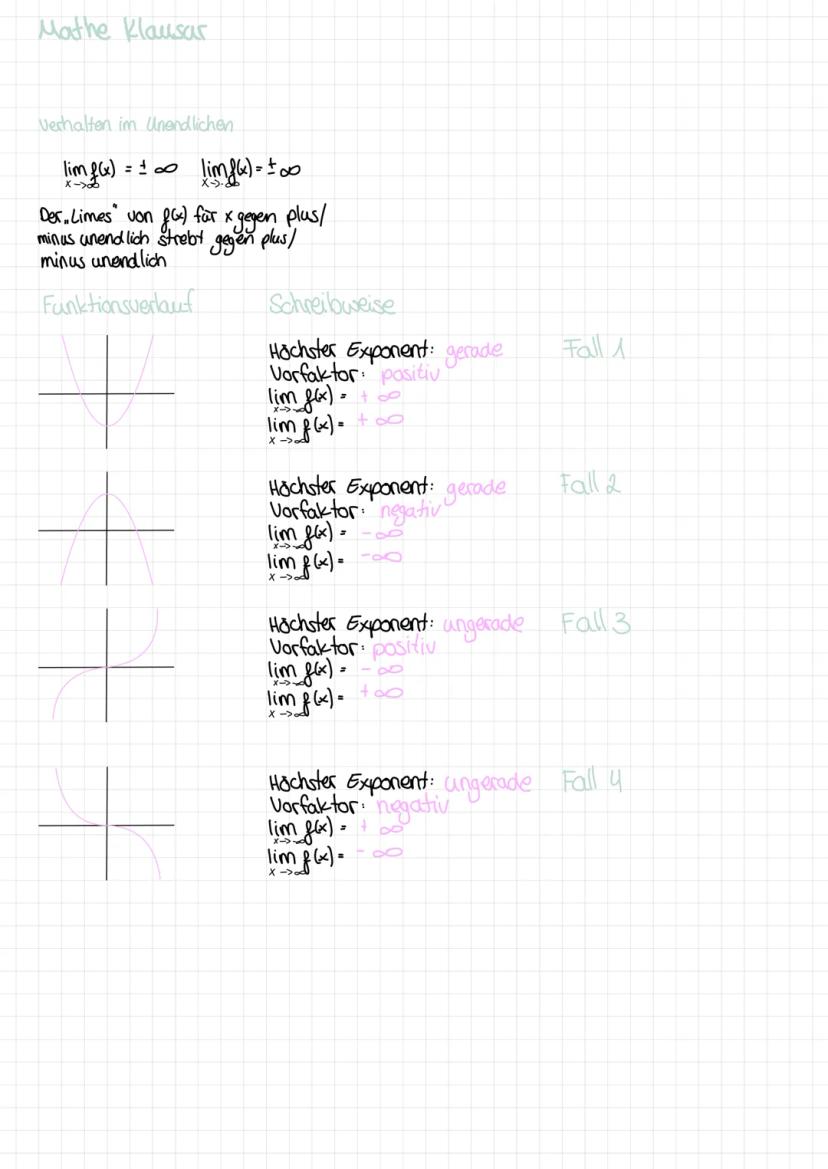 Mathe Klausur
Verhalten im Unendlichen
lim f(x) = ± ∞ lim f(x) = ± ∞
x->∞ x->-∞
Der „Limes" von f(x) für x gegen plus/
minus unendlich strebt gegen plus/
minus unendlich
Funktionsverlauf Schreibweise
Höchster Exponent: gerade Fall 1
Vorfaktor: positiv
lim f(x) = + ∞
x->-∞
lim f(x) = + ∞
x->∞
Höchster Exponent: gerade Fall 2
Vorfaktor: negativ
lim f(x) = - ∞
x->-∞
lim f(x) = - ∞
x->∞
Höchster Exponent: ungerade Fall 3
Vorfaktor: positiv
lim f(x) = - ∞
x->-∞
lim f(x) = + ∞
x->∞
Höchster Exponent: ungerade Fall 4
Vorfaktor: negativ
lim f(x) = + ∞
x->-∞
lim f(x) = - ∞
x->∞